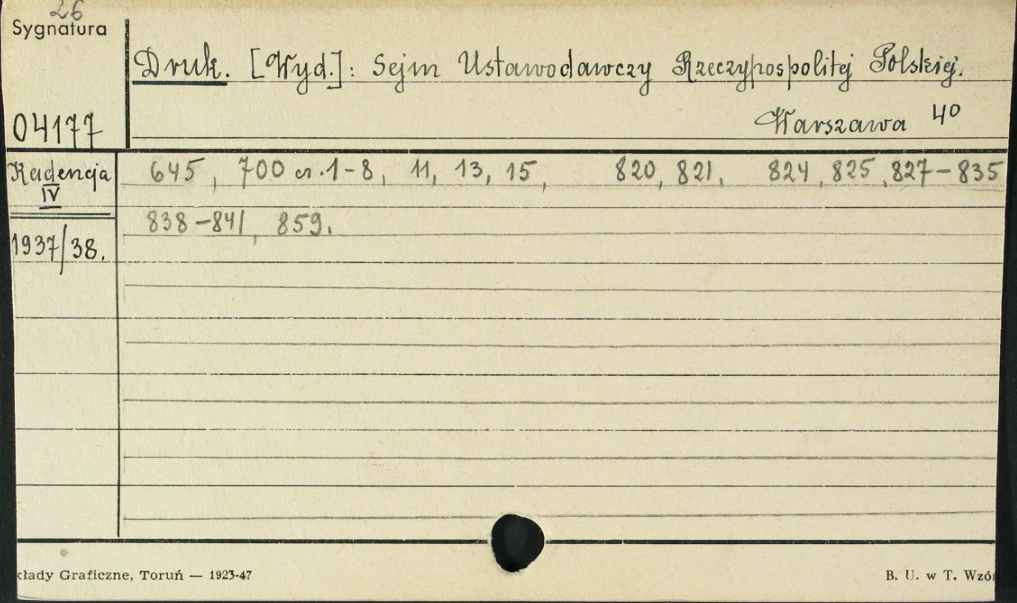 26
Sygnatura
Druk. [Wyd.]: Sejm Ustawodawczy Rzeczypospolitej Polskiej.
04177
Warszawa 4º
Kadencja IV
645, 700 cz. 1-8, 11, 13, 15, 820, 821, 824, 825, 827-835
838-841, 859.
1937/38.
kłady Graficzne, Toruń — 1923-47
B. U. w T. Wzór